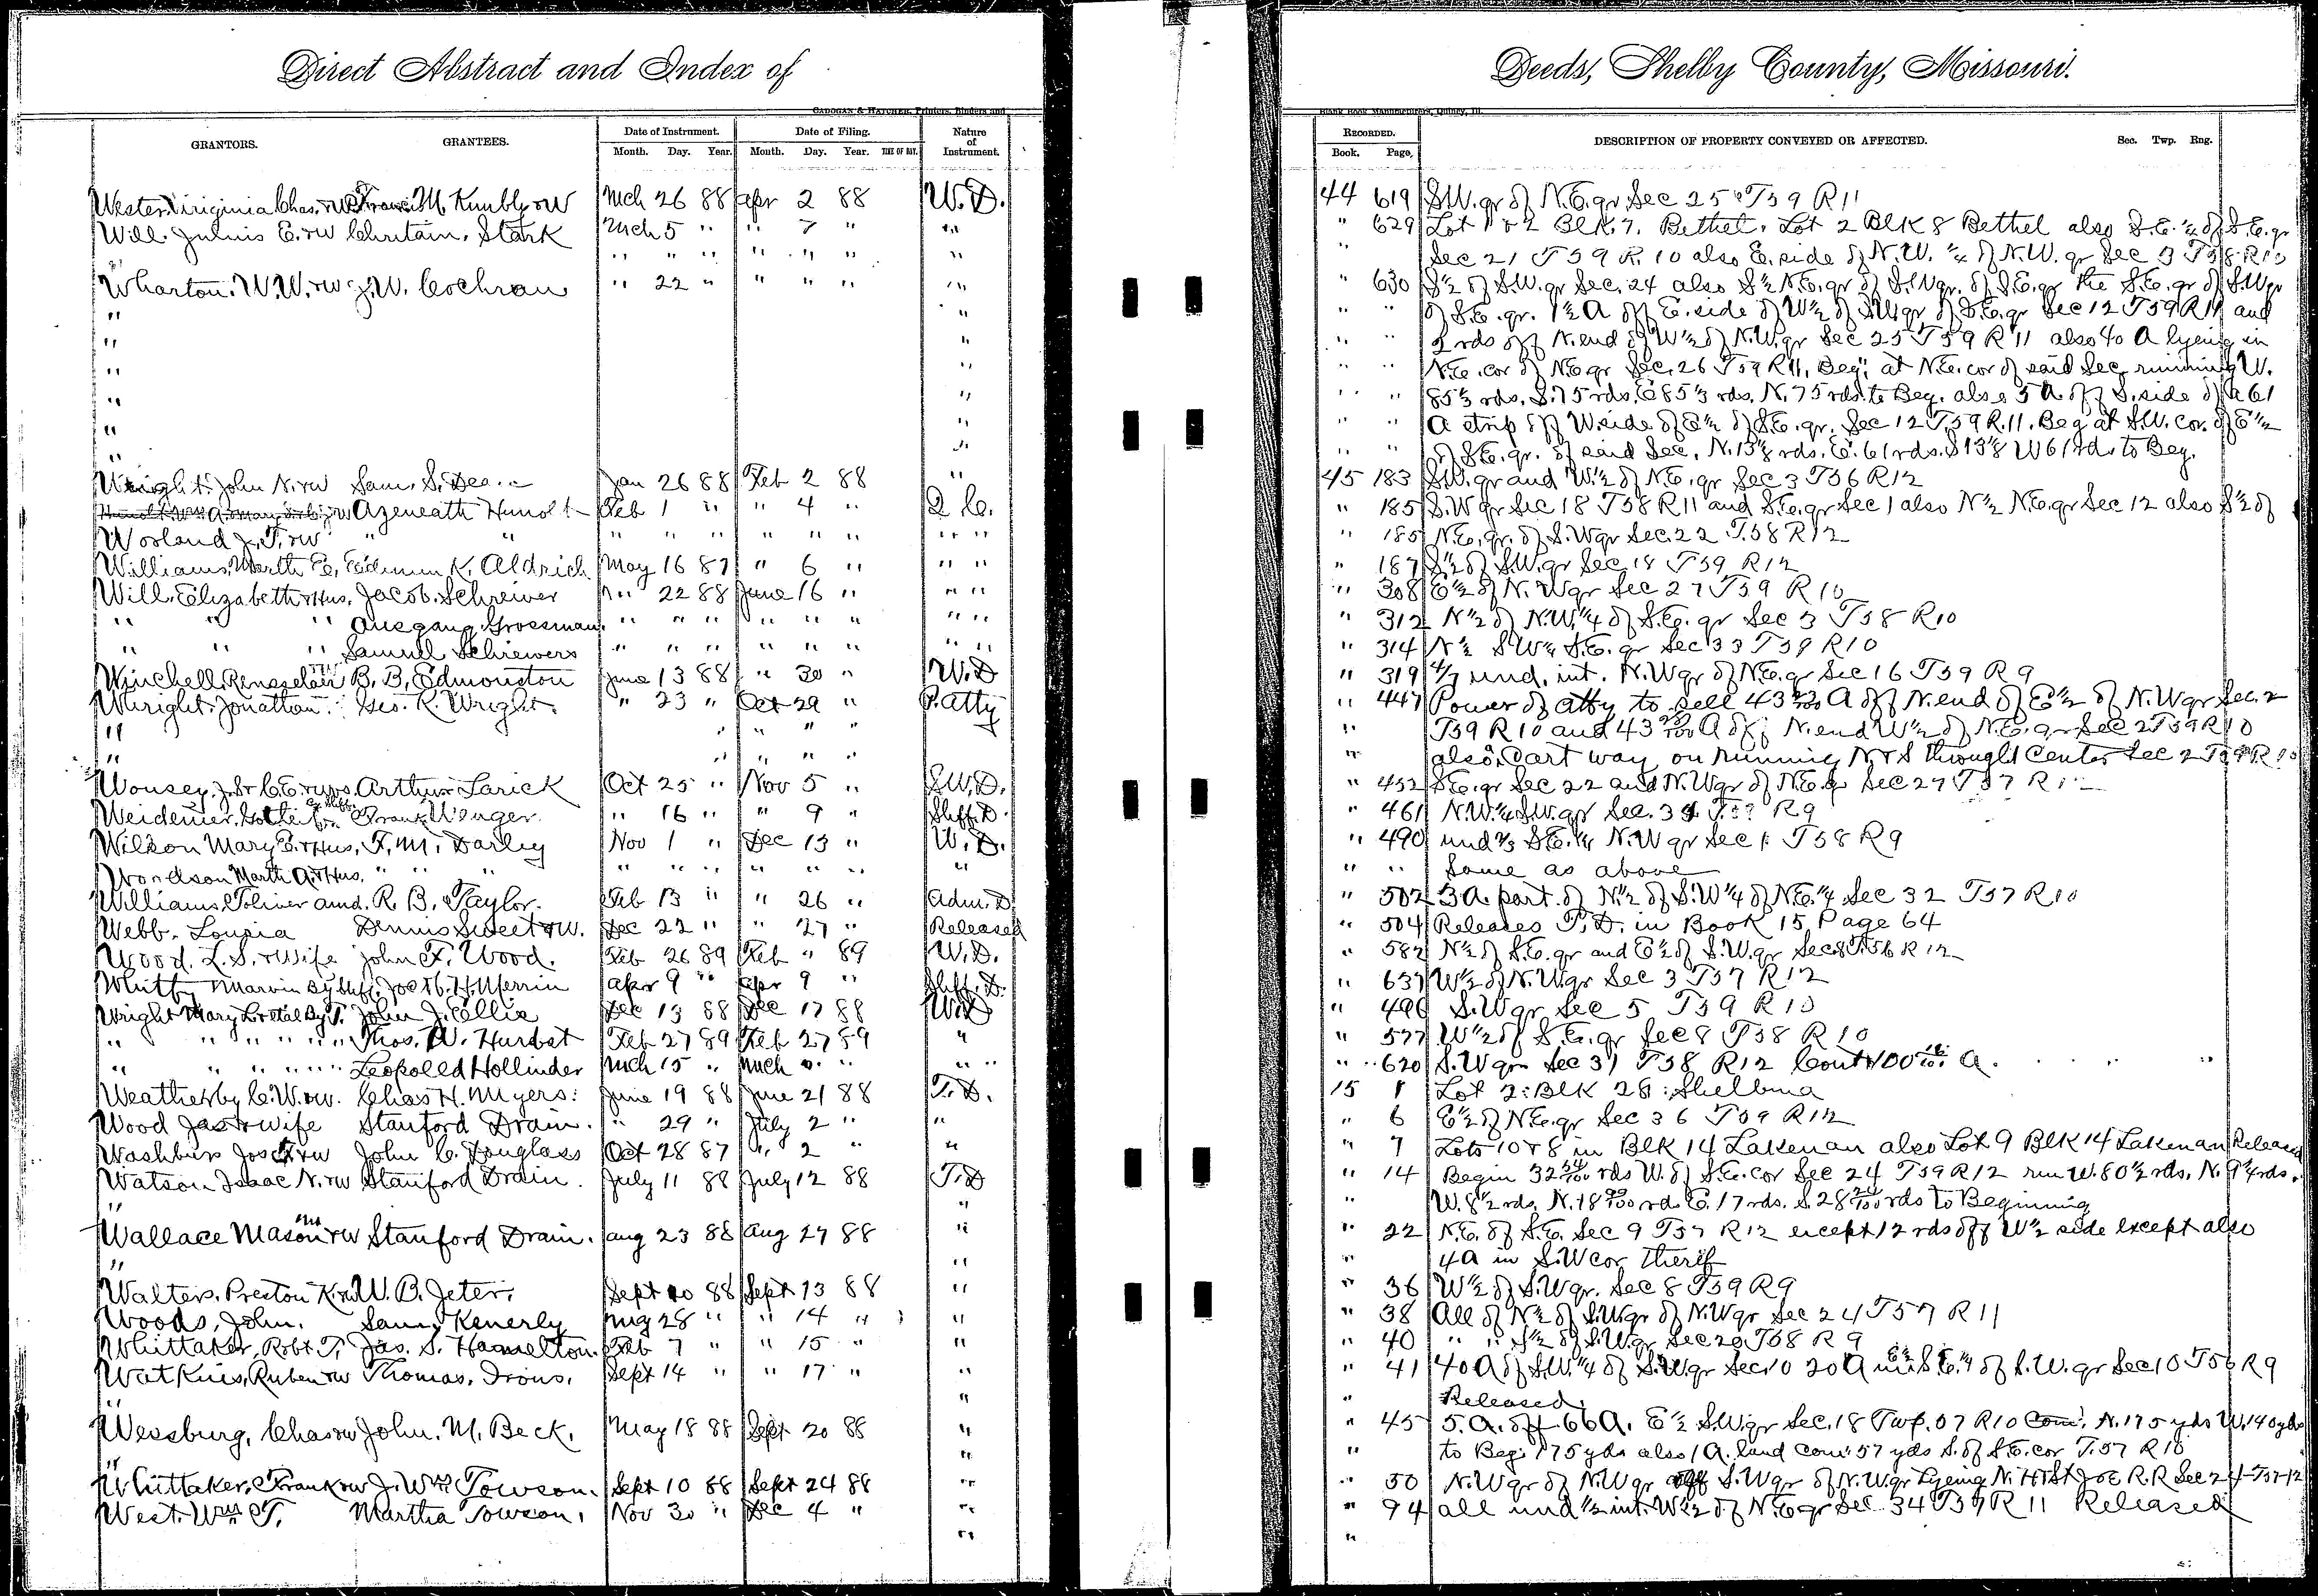 Direct Abstract and Index of
Deeds, Shelby County, Missouri.
CADOGAN & HATCHER, Printers, Binders and
Blank Book Manufacturers, Quincy, Ill.
GRANTORS. GRANTEES. Date of Instrument. Date of Filing. Nature of Instrument. RECORDED. DESCRIPTION OF PROPERTY CONVEYED OR AFFECTED. Sec. Twp. Rng.
Month. Day. Year. Month. Day. Year. TIME OF DAY. Book. Page.
Wester Viriginia Chas. M. Kimbly & W Mch 26 88 Apr 2 88 W.D. 44 619 S.W. qr of N.E. qr Sec 25 T59 R11
Will. Julius E. & W Christain. Stark Mch 5 " " 7 " " " 629 Lot 1 & 2 Blk 7. Bethel. Lot 2 Blk 8 Bethel also S.E. ¼ of S.E. qr
" " " " " " " " Sec 21 T59 R.10 also E. side of N.W. ¼ of N.W. qr Sec 3 T58 R10
Wharton. W.W. & W J.W. Cochran " 22 " " " " " " 630 S½ of S.W. qr Sec. 24 also S½ N.E. qr of S.W qr. of S.E. qr the S.E. qr of S.W qr
" " " " of S.E. qr. 1½ A off E. side of W½ of S.W. qr of S.E. qr Sec 12 T59 R11 and
" " " " 2 rds off N. end of W½ of N.W. qr Sec 25 T59 R11 also 40 A lyeing in
" " " " N.E. cor of N.E qr Sec. 26 T59 R11. Beg. at N.E. cor of said Sec running W.
" " " " 85⅓ rds. S. 75 rds. E 85⅓ rds. N. 75 rds. to Beg. also 5 A. off S. side of a 61
" " " " A strip off W. side of E½ of S.E. qr. Sec 12 T.59 R.11. Beg at S.W. cor. of E½
" " " " of S.E. qr. of said Sec, N. 13⅛ rds. E. 61 rds. S 13⅛ W 61 rds to Beg.
Wright. John N. & W Sam. S. Jan 26 88 Feb 2 88 " 45 183 S.W. qr and W.½ of N.E. qr Sec 3 T56 R12
Azeneath Hunolt Feb 1 " " 4 " Q.C. " 185 S.W qr Sec 18 T58 R11 and S.E. qr Sec 1 also N½ N.E. qr Sec 12 also S½ of
Worland J.T. & W " " " " " " " " " " " 185 N.E. qr. of S.W qr Sec. 22 T.58 R12
Williams, Marth E. K. Aldrich May 16 87 " 6 " " " " 187 S½ of S.W. qr Sec 18 T59 R12
Will. Elizabeth & Hus. Jacob. Schreiver " 22 88 June 16 " " " " 308 E½ of N. W qr Sec 27 T59 R10
" " " Ausgang. Grossman. " " " " " " " " " 312 N½ of N.W. ¼ of S.E. qr Sec 3 T58 R10
" " " Samuel Schriewers " " " " " " " " " 314 N½ S.W¼ S.E. qr Sec 33 T59 R10
Winchell, Rensselair B. B. Edmonston June 13 88 " 30 " W.D " 319 4/7 und. int. N.W qr of N.E. qr Sec 16 T59 R9
Wright. Jonathan. Geo. R. Wright. " 23 " Oct 29 " P. Atty " 447 Power of Atty to sell 43 A off N. end of E½ of N.W qr Sec. 2
" " " " " T59 R10 and 43 A off N. end W½ of N.E. qr Sec 2 T59 R10
" " " " " also Cart way on running N & S throught Center Sec 2 T59 R10
Arthur Larick Oct 25 " Nov 5 " S.W.D. " 452 S.E. qr Sec 22 and N.W qr of N.E. qr Sec 27 T57
Weidemer, Frank Wenger. " 16 " " 9 " Shff. D. " 461 N.W. ¼ S.W. qr Sec. 34 R9
Wilson Mary & Hus. F. M. Darley Nov 1 " Dec 13 " W.D. " 490 und ⅔ S.E. ¼ N.W qr Sec 1 T58 R9
Woodson Marth A. & Hus. " " " " " " " " " " " Same as above
Williams, Toliver amd. R. B. Taylor. Feb 13 " " 26 " Adm. D. " 502 3 A. part of N½ of S.W¼ of N.E.¼ Sec 32 T57 R10
Webb. Louisia Dennis Sweet & W. Dec 22 " " 27 " Released " 504 Releases T.D. in Book 15 Page 64
Wood. L.S. & Wife John F. Wood. Feb 26 89 Feb " 89 W.D. " 582 N½ of S.E. qr and E½ of S.W. qr Sec 8 T.56 R12
Marvin By Shff. Apr 9 " Apr 9 " Shff. D. " 637 W½ of N.W. qr Sec 3 T57 R12
Wright Mary L. et al By T. John J. Ellis Dec 13 88 Dec 17 88 W.D " 496 S.W qr Sec 5 T59 R10
" " " " " " Thos. W. Hurbat Feb 27 89 Feb 27 89 " " 577 W½ of S.E. qr Sec 8 T58 R10
" " " " " " Leopolld Hollinder Mch 15 " Mch " " " " 620 S.W qr Sec 31 T58 R12 Cont 100 A.
Weatherby C.W. & W. Chas H. Myers. June 19 88 June 21 88 T.D. 15 1 Lot 2 Blk 28 Shelbina
Wood Jas & Wife Stanford Drain. " 29 " July 2 " " " 6 E½ of N.E. qr Sec 36 T59 R12
Washburn & W John C. Douglass Oct 28 87 " 2 " " " 7 Lots 10 & 8 in Blk 14 Lakenan also Lot 9 Blk 14 Lakenan Released
Watson Isaac N. & W Stanford Drain. July 11 88 July 12 88 T.D " 14 Begin 32 rds W. of S.E. cor Sec 24 T59 R12 run W. 80½ rds. N. 9¼ rds.
" " " W. 8½ rds. N. 18 rds E. 17 rds. S. 28 rds to Beginning
Wallace Mason & W Stanford Drain. Aug 23 88 Aug 27 88 " " 22 N.E. of S.E. Sec 9 T57 R12 except 12 rds off W½ side except also
" " " 4 A in S.W cor therif
Walters. Preston K. & W. W. B. Jeter. Sept 10 88 Sept 13 88 " " 36 W½ of S.W qr. Sec 8 T59 R9
Woods, John. Sam. Kenerly Aug 28 " " 14 " " " 38 All of N½ of S.W. qr of N.W qr Sec 24 T57 R11
Whittaker, Robt T. Jas. S. Hamelton. Feb 7 " " 15 " " " 40 " " S½ of S.W. qr Sec 20 T58 R9
Watkins, Ruben & W Thomas. Irons. Sept 14 " " 17 " " " 41 40 A of S.W. ¼ of S.W. qr Sec 10 20 A E½ S.E. ¼ of S.W. qr Sec 10 T56 R9
" " Released
Wessburg, Chas & W John. M. Beck. May 18 88 Sept 20 88 " " 45 5. A. off 66 A. E½ S.W. qr Sec. 18 Twp. 57 R10 Com. N. 175 yds W. 140 yds
" " " to Beg. 175 yds also 1 A. land Com. 57 yds S. of S.E. cor T.57 R10
Whittaker, Frank & W J. Wm Towson. Sept 10 88 Sept 24 88 " " 50 N.W qr of N.W qr S.W qr of N.W. qr Lyeing N. H & St Joe R.R Sec 24 T57 12
West. Wm T. Martha Towson. Nov 30 " Dec 4 " " " 94 all und ½ int. W½ of N.E qr Sec 34 T57 R11 Released
" "